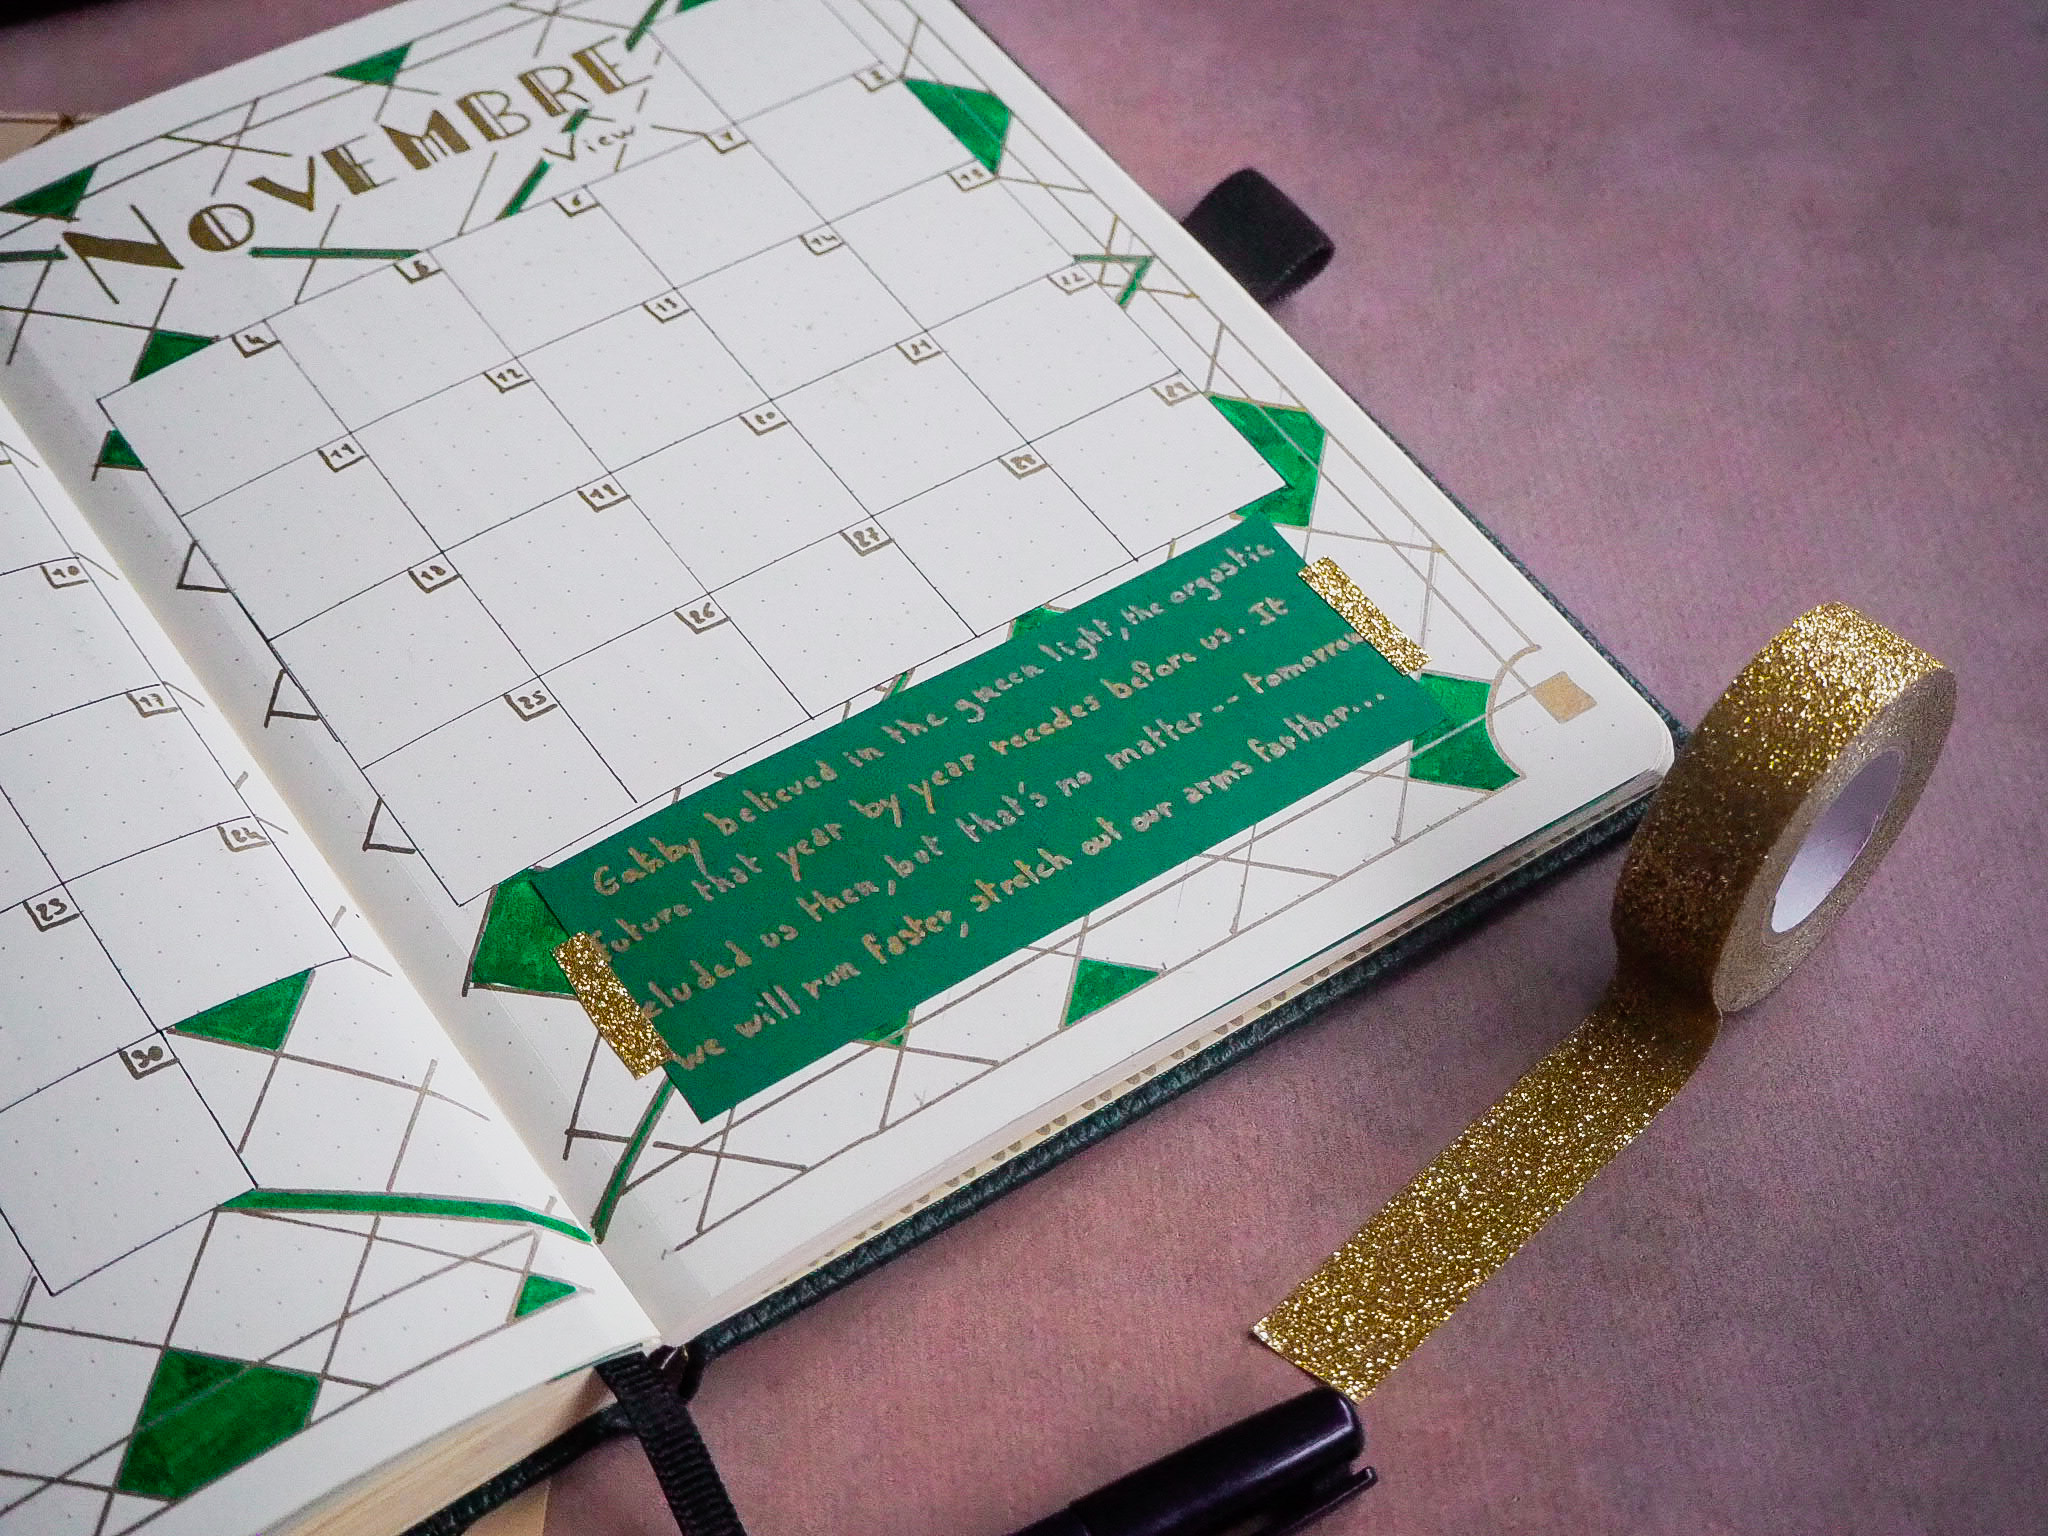 10
17
23 24
30
NOVEMBRE
View
4 5 6 7 8
11 12 13 14 15
18 19 20 21 22
25 26 27 28 29
Gatsby believed in the green light, the orgastic
future that year by year recedes before us. It
eluded us then, but that's no matter -- tomorrow
we will run faster, stretch out our arms farther...